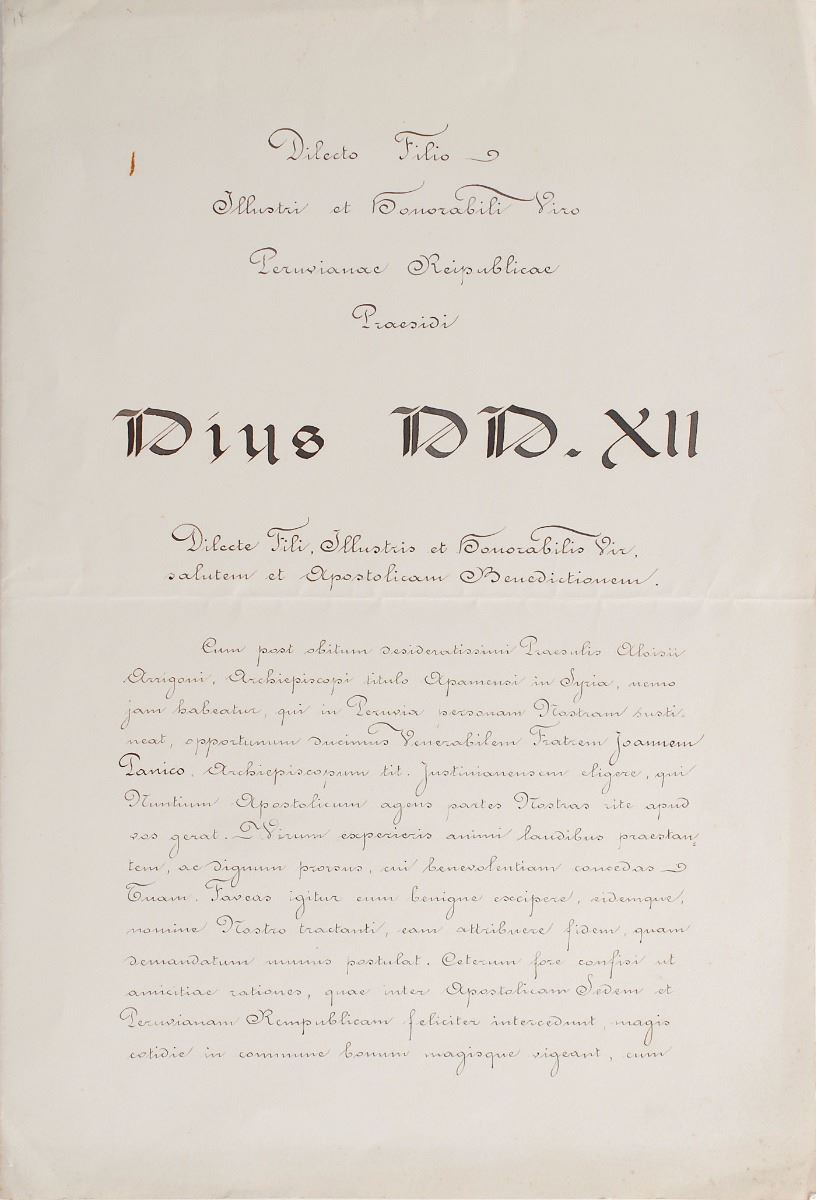 Dilecto Filio
Illustri et Honorabili Viro
Peruvianae Reipublicae
Praesidi
Pius PP. XII
Dilecte Fili, Illustris et Honorabilis Vir,
salutem et Apostolicam Benedictionem.
Cum post obitum desideratissimi Praesulis Aloisii
Arrigoni, Archiepiscopi titulo Apamensi in Syria, nemo
jam habeatur, qui in Peruvia personam Nostram susti-
neat, opportunum ducimus Venerabilem Fratrem Joannem
Panico, Archiepiscopum tit. Justinianensem eligere, qui
Nuntium Apostolicum agens partes Nostras rite apud
vos gerat. Virum experieris animi laudibus praestan-
tem, ac dignum prorsus, cui benevolentiam concedas
Tuam. Faveas igitur eum benigne excipere, eidemque,
nomine Nostro tractanti, eam attribuere fidem, quam
demandatum munus postulat. Ceterum fore confisi ut
amicitiae rationes, quae inter Apostolicam Sedem et
Peruvianam Rempublicam feliciter intercedunt, magis
cotidie in commune bonum magisque vigeant, cum